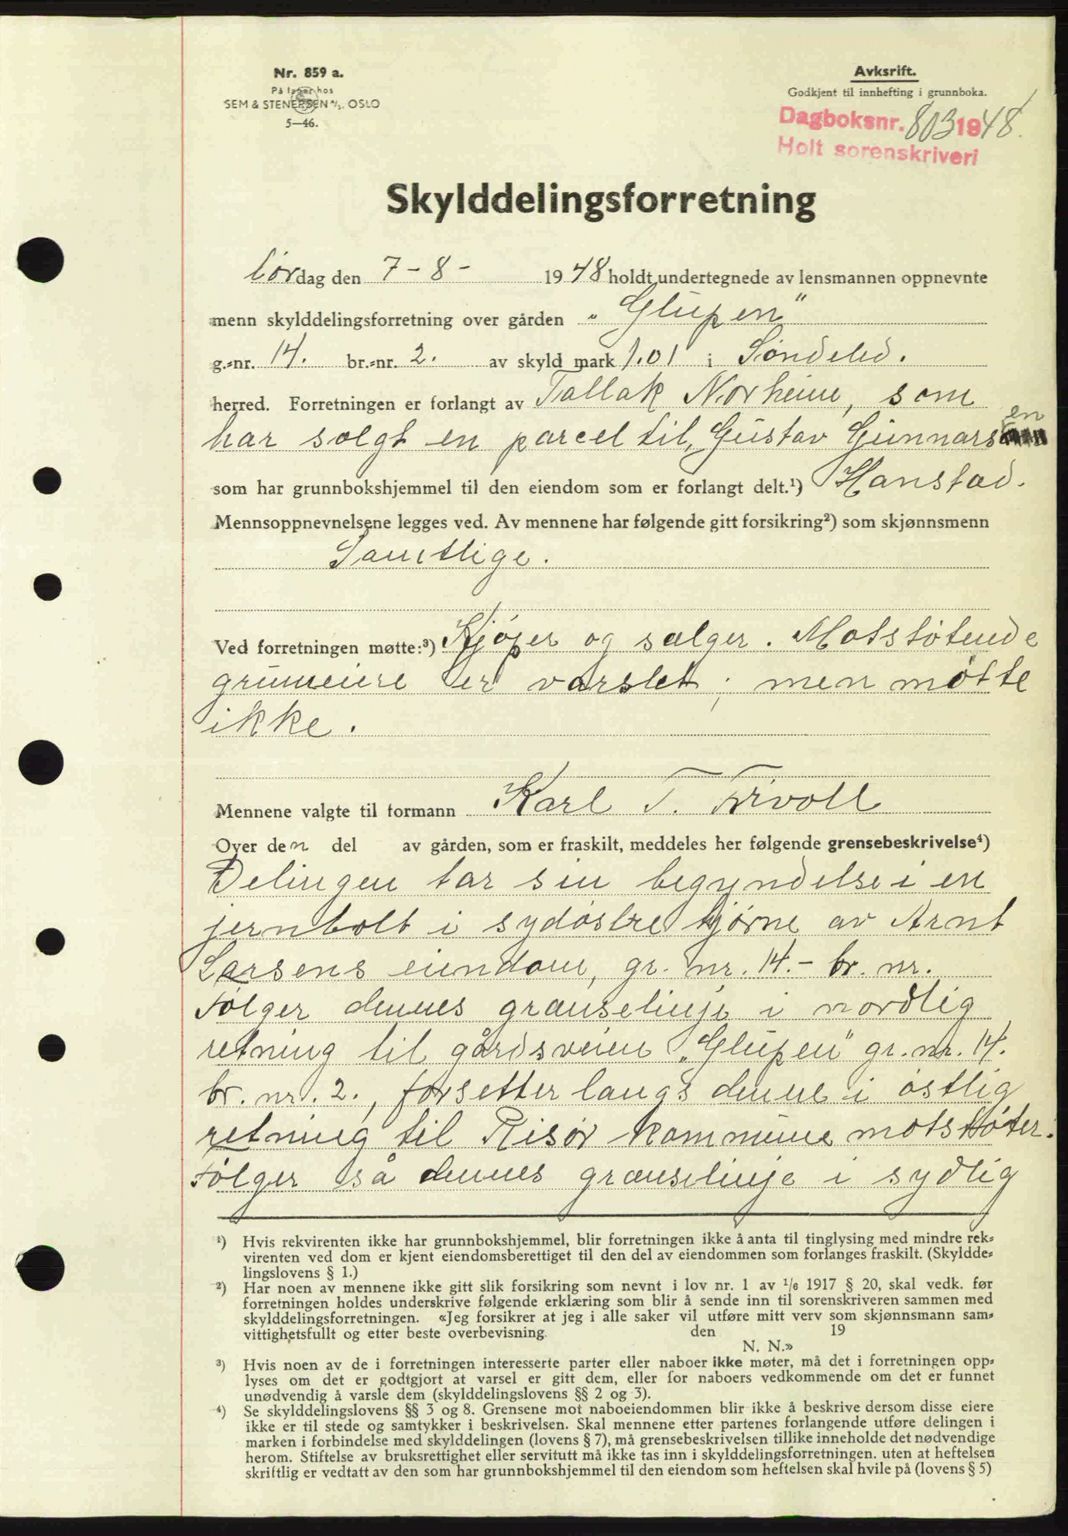 Nr. 859 a.
På lager hos
SEM & STENERSEN A/S. OSLO
5—46.
Avksrift.
Godkjent til innhefting i grunnboka.
Dagboksnr. 803 1948.
Holt sorenskriveri
Skylddelingsforretning
Lørdag den 7-8- 1948 holdt undertegnede av lensmannen oppnevnte
menn skylddelingsforretning over gården „Glupen"
g.-nr. 14. br.-nr. 2. av skyld mark 1.01 i Søndeled.
herred. Forretningen er forlangt av Tallak Norheim, som
har solgt en parcel til, Gustav Gunnarsen
som har grunnbokshjemmel til den eiendom som er forlangt delt.¹) Hanstad.
Mennsoppnevnelsene legges ved. Av mennene har følgende gitt forsikring²) som skjønnsmenn
Samtlige.
Ved forretningen møtte:³) Kjøper og sælger. Motstøtende
gruneiere er varslet; men møtte
ikke.
Mennene valgte til formann Karl T. Trivoll
Over den del av gården, som er fraskilt, meddeles her følgende grensebeskrivelse⁴)
Delingen tar sin begyndelse i en
jernbolt i sydøstre hjørne av Arnt
Larsens eiendom, gr. nr. 14.- br. nr.
Følger dennes grænselinje i nordlig
retning til gårdsveien „Glupen" gr. nr. 14.
br. nr. 2., forsetter langs denne i østlig
retning til Risør kommune motstøter.
Følger så dennes grænselinje i sydlig
¹) Hvis rekvirenten ikke har grunnbokshjemmel, blir forretningen ikke å anta til tinglysing med mindre rek-
virenten ved dom er kjent eiendomsberettiget til den del av eiendommen som forlanges fraskilt. (Skyldde-
lingslovens § 1.)
²) Har noen av mennene ikke gitt slik forsikring som nevnt i lov nr. 1 av 1/6 1917 § 20, skal vedk. før
forretningen holdes underskrive følgende erklæring som blir å sende inn til sorenskriveren sammen med
skylddelingsforretningen. «Jeg forsikrer at jeg i alle saker vil utføre mitt verv som skjønnsmann sam-
vittighetsfullt og etter beste overbevisning. den 19
N. N.»
³) Hvis noen av de i forretningen interesserte parter eller naboer ikke møter, må det i forretningen opp-
lyses om det er godtgjort at varsel er gitt dem, eller for naboers vedkommende om det er funnet
unødvendig å varsle dem (skylddelingslovens §§ 2 og 3).
⁴) Se skylddelingslovens §§ 3 og 8. Grensene mot naboeiendommen blir ikke å beskrive dersom disse eiere
ikke er til stede og samtykker i beskrivelsen. Skal mennene etter partenes forlangende utføre delingen i
marken i forbindelse med skylddelingen (lovens § 7), må grensebeskrivelsen tillike inneholde det nødvendige
herom. Stiftelse av bruksrettighet eller servitutt må ikke tas inn i skylddelingsforretningen. uten at heftelsen
skriftlig er vedtatt av den som har grunnbokshjemmel til den eiendom som heftelsen skal hvile på (lovens § 5)